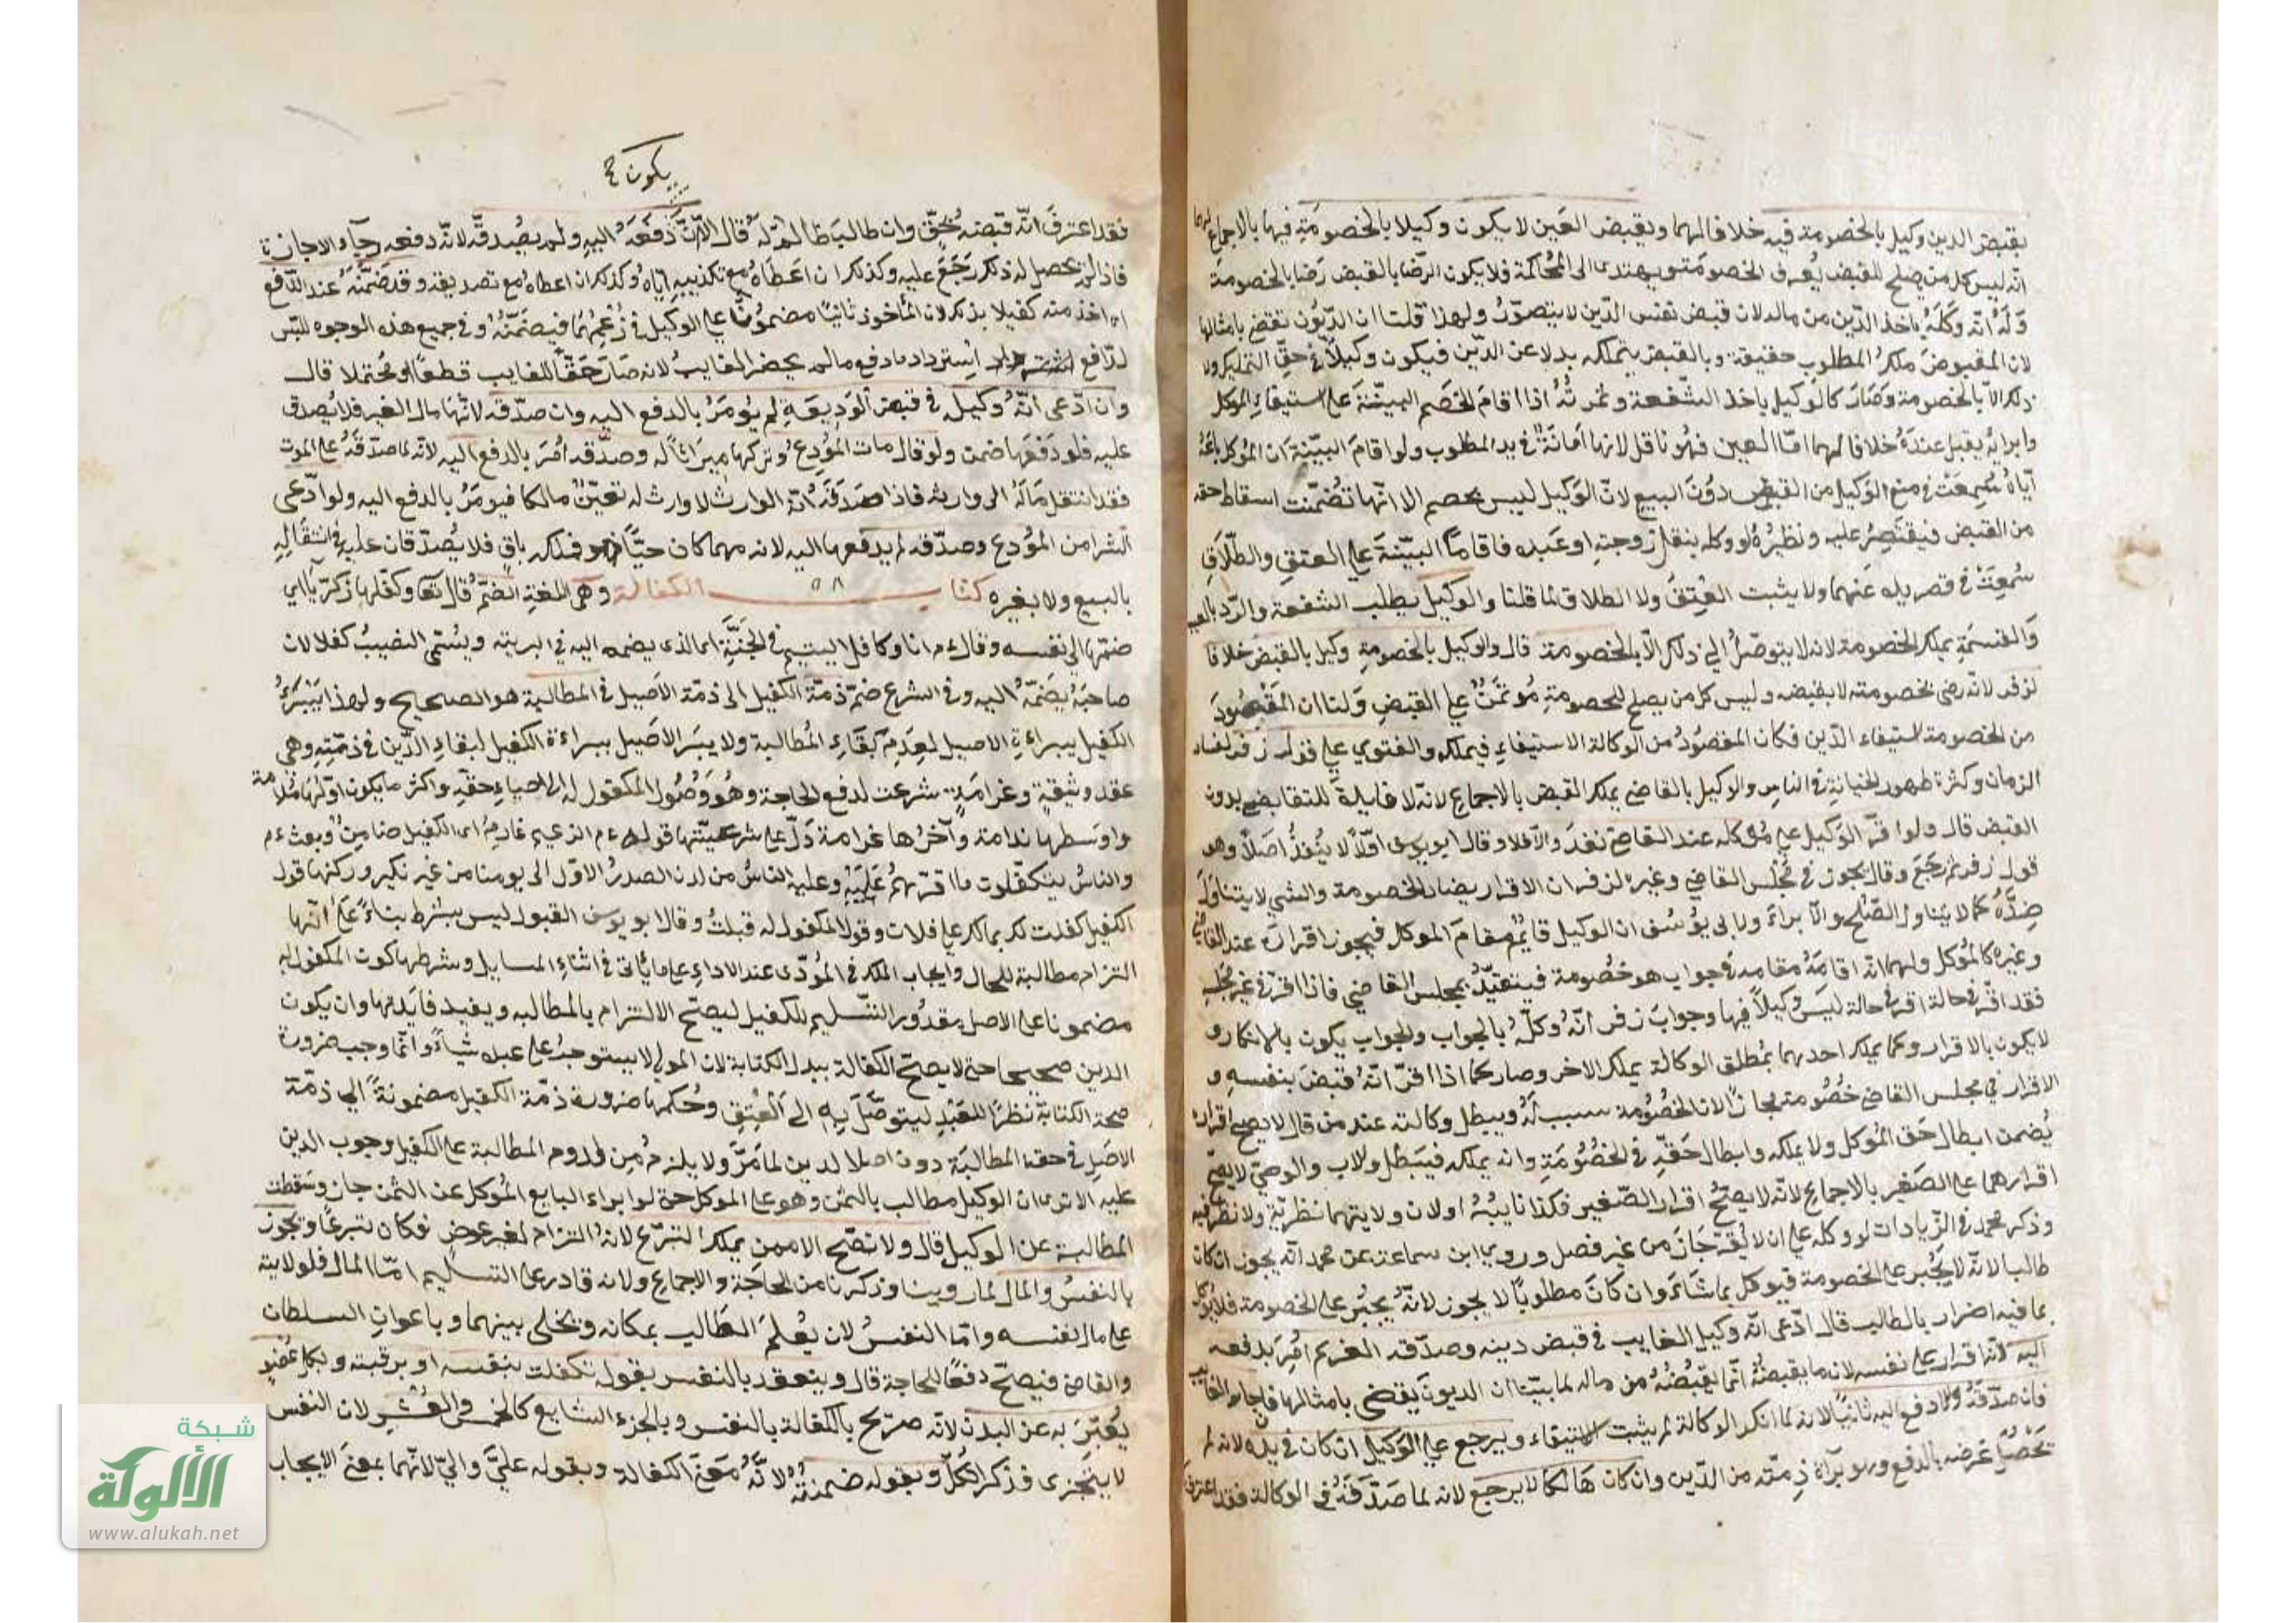 بقبض الدين وكيل بالخصومة فيه خلافا لهما وبقبض العين لا يكون وكيلا بالخصومة فيها بالاجماع لهما
انه ليس كل من يصلح للقبض يعرف الخصومة ويهتدى الى المحاكمة فلا يكون الرضا بالقبض رضا بالخصومة
وله انه وكله باخذ الدين من ماله لان قبض نفس الدين لا يتصور ولهذا قلنا ان الديون تقضى بامثالها
لان المقبوض ملك المطلوب حقيقة وبالقبض يتملكه بدلا عن الدين فيكون وكيلا في حق التمليك ولا
ذلك الا بالخصومة وصار كالوكيل باخذ الشفعة وثمرته اذا اقام الخصم البينة على استيفاء الموكل
وابرايه يقبل عنده خلافا لهما اما العين فهو ناقل لانها امانة في يد المطلوب ولو اقام البينة ان الموكل باعه
اياه سمعت في منع الوكيل من القبض دون البيع لان الوكيل ليس بخصم الا انها تضمنت اسقاط حقه
من القبض فيقتصر عليه ونظيره لو وكله بنقل زوجته او عبده فاقاما البينة على العتق والطلاق
سمعت في قصر يده عنهما ولا يثبت العتق ولا الطلاق لما قلنا والوكيل بطلب الشفعة والرد بالعيب
والقسمة يملك الخصومة لانه لا يتوصل الى ذلك الا بالخصومة قال والوكيل بالخصومة وكيل بالقبض خلافا
لزفر لانه رضى بخصومته لا بقبضه وليس كل من يصلح للخصومة مؤتمن على القبض ولنا ان المقصود
من الخصومة استيفاء الدين فكان المقصود من الوكالة الاستيفاء فيملكه والفتوى على قول زفر لفساد
الزمان وكثرة ظهور الخيانة في الناس والوكيل بالقاضي يملك القبض بالاجماع لانه لا فايدة للتقاضي بدون
القبض قال ولو اقر الوكيل على موكله عند القاضي نفذ والا فلا وقال ابو يوسف اولا لا ينفذ اصلا وهو
قول زفر ثم رجع وقال يجوز في مجلس القاضي وغيره لزفر ان الاقرار يضاد الخصومة والشي لا يتناول
ضده كما لا يتناول الصلح والابراء ولابى يوسف ان الوكيل قايم مقام الموكل فيجوز اقراره عند القاضي
وغيره كالموكل ولهما انه اقامه مقامه في جواب هو خصومة فيتقيد بمجلس القاضي فاذا اقر في غير مجلسه
فقد اقر في حالة اقر في حالة ليس وكيلا فيها وجواب زفر انه وكله بالجواب والجواب يكون بالانكار و
لا يكون بالاقرار وكما يملك احدهما بمطلق الوكالة يملك الاخر وصار كما اذا اقر انه قبض بنفسه و
الاقرار في مجلس القاضي خصومة مجازا لان الخصومة سبب له ويبطل وكالته عند من قال لا يصح اقراره
يضمن ابطال حق الموكل ولا يملكه وابطال حقه في الخصومة وانه يملكه فيبطل ولاب والوصي لا يصح
اقرارهما على الصغير بالاجماع لانه لا يصح اقرار الصغير فكذا نايبه اولان ولايتهما نظرية ولا نظر فيه
وذكر محمد في الزيادات لو وكله على ان لا يقر جاز من غير فصل وروى ابن سماعة عن محمد انه يجوز ان كان
طالبا لانه لا يجبر على الخصومة فيوكل بما شاء وان كان مطلوبا لا يجوز لانه يجبر على الخصومة فلا يوكل
بما فيه اضرار بالطالب قال ادعى انه وكيل الغايب في قبض دينه وصدقه الغريم امر بدفعه
اليه لانه اقرار على نفسه لان ما يقبضه انما يقبضه من ماله لما بينا ان الديون تقضى بامثالها فاجاء الغايب
فان صدقه والا دفع اليه ثانيا لانه لما انكر الوكالة لم يثبت الاستيفاء ويرجع على الوكيل ان كان في يده لانه لم
تحصل غرضه بالدفع وهو براة ذمته من الدين وان كان هالكا لا يرجع لانه لما صدقه في الوكالة فقد اعترف
يكون
فقد اعترف انه قبضه بحق وان طالبا ظالم له قال الا ان دفعه اليه ولم يصدقه لانه دفعه رجاء الاجازة
فاذا لم يحصل له ذلك رجع عليه وكذلك ان اعطاه مع تكذيبه اياه وكذلك ان اعطاه مع تصديقه وقد ضمنه عند الدفع
او اخذ منه كفيلا بذلك لان المأخوذ ثانيا مضمون على الوكيل في زعمهما فيضمنه وفي جميع هذه الوجوه ليس
للدافع استرداد ما دفع ما لم يحضر الغايب لانه صار حقا للغايب قطعا او محتملا قال
وان ادعى انه وكيل في قبض الوديعة لم يؤمر بالدفع اليه وان صدقه لانها مال الغير فلا يصدق
عليه فلو دفعها ضمن ولو قال مات المودع وتركها ميراثا له وصدقه امر بالدفع اليه لانه لما صدقه على الموت
فقد انتقل ماله الى وارثه فاذا صدقه انه الوارث لا وارث له تعين مالكا فيؤمر بالدفع اليه ولو ادعى
الشرا من المودع وصدقه لم يدفعها اليه لانه مهما كان حيا فملكه باق فلا يصدقان عليه في انتقاله
بالبيع ولا بغيره كتاب الكفالة وهي في اللغة الضم قال تعا وكفلها زكريا اي
ضمها الى نفسه وقال ءم انا وكافل اليتيم في الجنة اى الذى يضمه اليه في البرية ويسمى النصيب كفلا لان
صاحبه يضمه اليه وفي الشرع ضم ذمة الكفيل الى ذمة الاصيل في المطالبة هو الصحيح ولهذا يبرأ
الكفيل ببراءة الاصيل لعدم بقاء المطالبة ولا يبر الاصيل ببراءة الكفيل لبقاء الدين في ذمته وهى
عقد وثيقة وغرامة شرعت لدفع الحاجة وهو وصول المكفول له الى احياء حقه واكثر ما يكون اولها ملامة
واوسطها ندامة وآخرها غرامة دل على شرعيتها قوله ءم الزعيم غارم اى الكفيل ضامن وبعث ءم
والناس يتكفلون فاقرهم عليه وعليه الناس من لدن الصدر الاول الى يومنا من غير نكير وركنها قول
الكفيل كفلت لك بمالك على فلان وقول المكفول له قبلت وقال ابو يوسف القبول ليس بشرط بناء على انها
التزام مطالبة للحال وايجاب الملك في المؤدى عند الاداء على ما يأتى في اثناء المسايل وشرطها كون المكفول به
مضمونا على الاصل مقدور التسليم للكفيل ليصح الالتزام بالمطالبه ويفيد فايدتها وان يكون
الدين صحيحا حتى لا يصح الكفالة ببدل الكتابة لان المولى لا يستوجب على عبده شيأ وانما وجب ضرورة
صحة الكتابة نظرا للعبد ليتوصل به الى العتق وحكمها ضرورة ذمة الكفيل مضمونة الى ذمة
الاصل في حق المطالبة دون اصل الدين لما مر ولا يلزم من لزوم المطالبة على الكفيل وجوب الدين
عليه الا ترى ان الوكيل مطالب بالثمن وهو على الموكل حتى لو ابراء البايع الموكل عن الثمن جاز وسقطت
المطالبة عن الوكيل قال ولا تصح الا ممن يملك التبرع لانه التزام لغير عوض فكان تبرعا وتجوز
بالنفس والمال لما روينا وذكرنا من الحاجة والاجماع ولانه قادر على التسليم اما المال فلولايته
على مال نفسه واما النفس لان يعلم الطالب بمكانه ويخلى بينهما وباعوان السلطان
والقاضى فيصح دفعا للحاجة قال وينعقد بالنفس بقوله تكفلت بنفسه او برقبته وبكل عضو
يعبر به عن البدن لانه صريح بالكفالة بالنفس وبالجزء الشايع كالخمس والعشر لان النفس
لا يتجزى فذكر الكل وبقوله ضمنته لانه معنى الكفالة وبقوله علي والي لانهما بمعنى الايجاب
شبكة
الألوكة
www.alukah.net